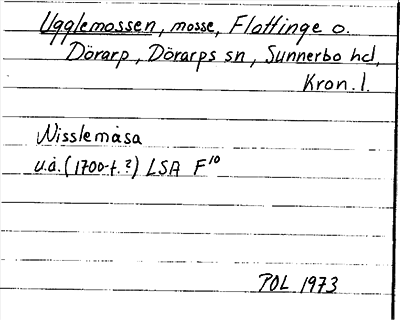 Ugglemossen, mosse, Flattinge o.
Dörarp, Dörarps sn, Sunnerbo hd,
Kron. l.
Nisslemåsa
u.å. (1700-t.?) LSA F¹⁰
POL 1973